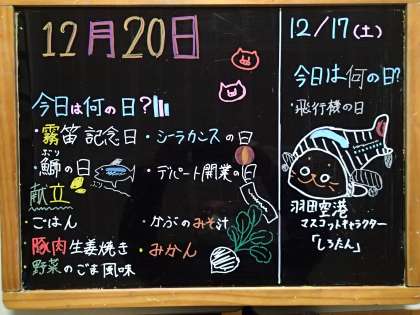 12月20日
今日は何の日?
・霧笛記念日
・シーラカンスの日
ぶり
・鰤の日
・デパート開業の日
献立
・ごはん
・かぶのみそ汁
・豚肉生姜焼き
・みかん
・野菜のごま風味
12/17(土)
今日は何の日?
・飛行機の日
羽田空港
マスコットキャラクター
「しろたん」